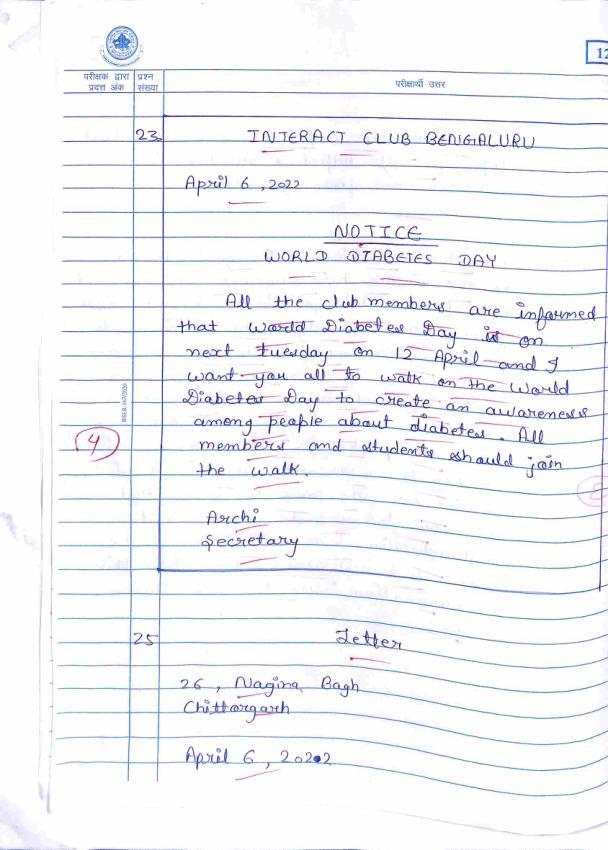 12
परीक्षक द्वारा प्रदत्त अंक
प्रश्न संख्या
परीक्षार्थी उत्तर
23
INTERACT CLUB BENGALURU
April 6, 2022
NOTICE
WORLD DIABETES DAY
All the club members are informed
that world Diabetes Day is on
next tuesday on 12 April and I
want you all to walk on the world
Diabetes Day to create an awareness
among people about diabetes. All
members and students should join
the walk.
4
Archi
Secretary
25
Letter
26, Nagina Bagh
Chittorgarh
April 6, 2022